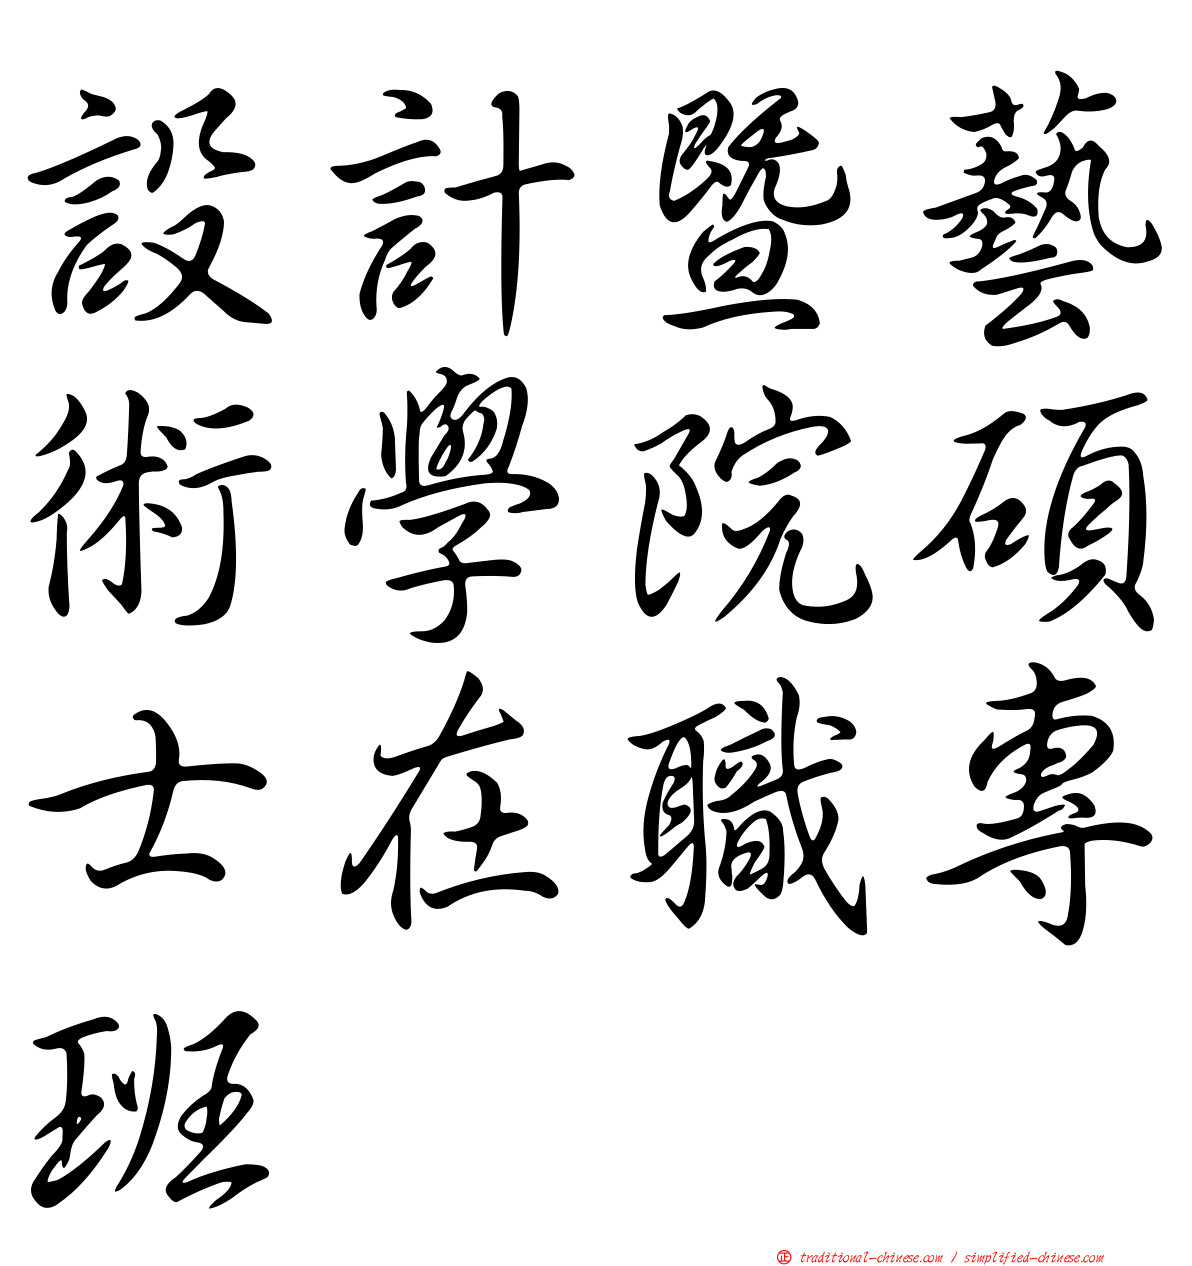 設計暨藝
術學院碩
士在職專
班
正 traditional-chinese.com / simplified-chinese.com